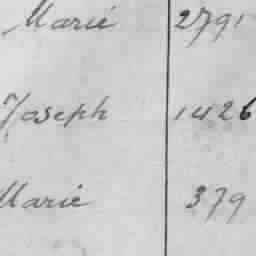 Marié 2791
Joseph 1426
Marie 379